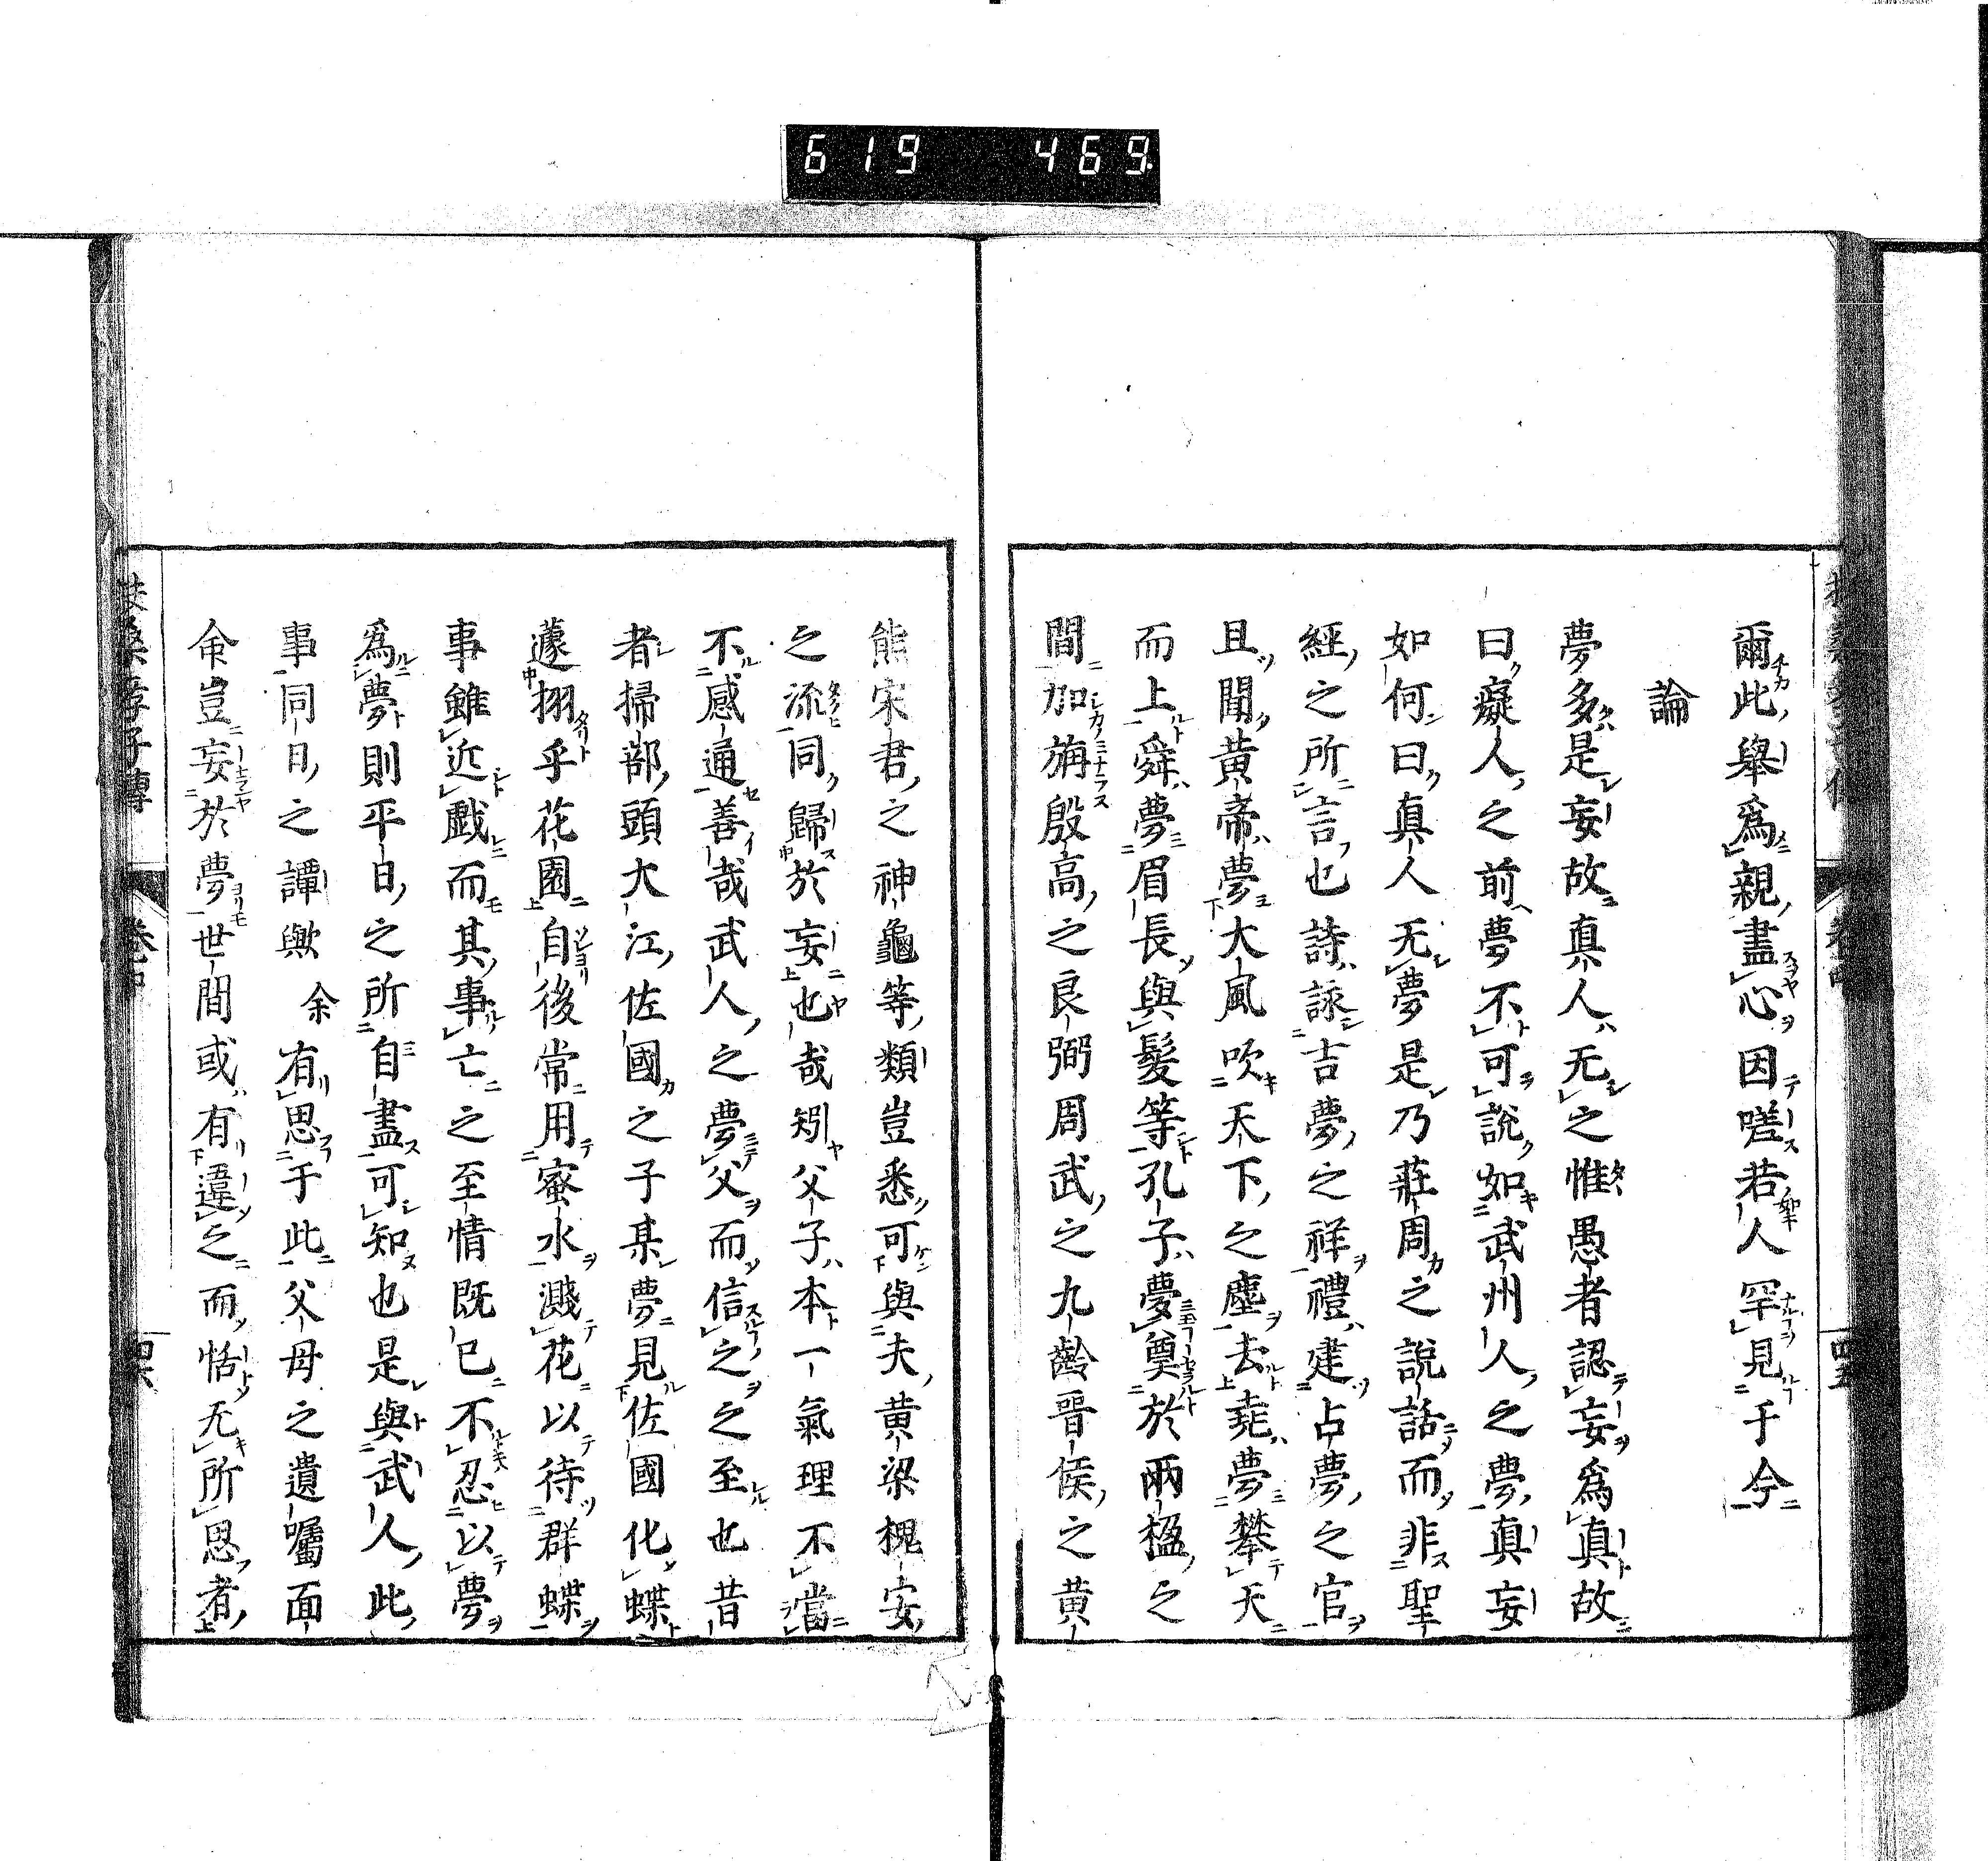 619 469
爾此舉爲親盡心因嗟若人罕見于今
論
夢多是妄故真人无之惟愚者認妄爲真故
曰癡人之前夢不可說如武州人之夢真妄
如何曰真人无夢是乃莊周之說話而非聖
經之所言也詩詠吉夢之祥禮建占夢之官
且聞黃帝夢大風吹天下之塵去堯夢攀天
而上舜夢眉長與髮等孔子夢奠於兩楹之
間加旃殷高之良弼周武之九齡晋侯之黄
熊宋君之神龜等類豈悉可與夫黄粱槐安
之流同歸於妄也哉矧父子本一氣理不當
不感通善哉武人之夢父而信之之至也昔
者掃部頭大江佐國之子某夢見佐國化蝶
蘧栩乎花園自後常用蜜水濺花以待群蝶
事雖近戲而其事亡之至情既已不忍以夢
爲夢則平日之所自盡可知也是與武人此
事同日之譚歟 余有思于此父母之遺囑面
命豈妄於夢世間或有違之而恬无所思者
扶桑孝子傳 卷四